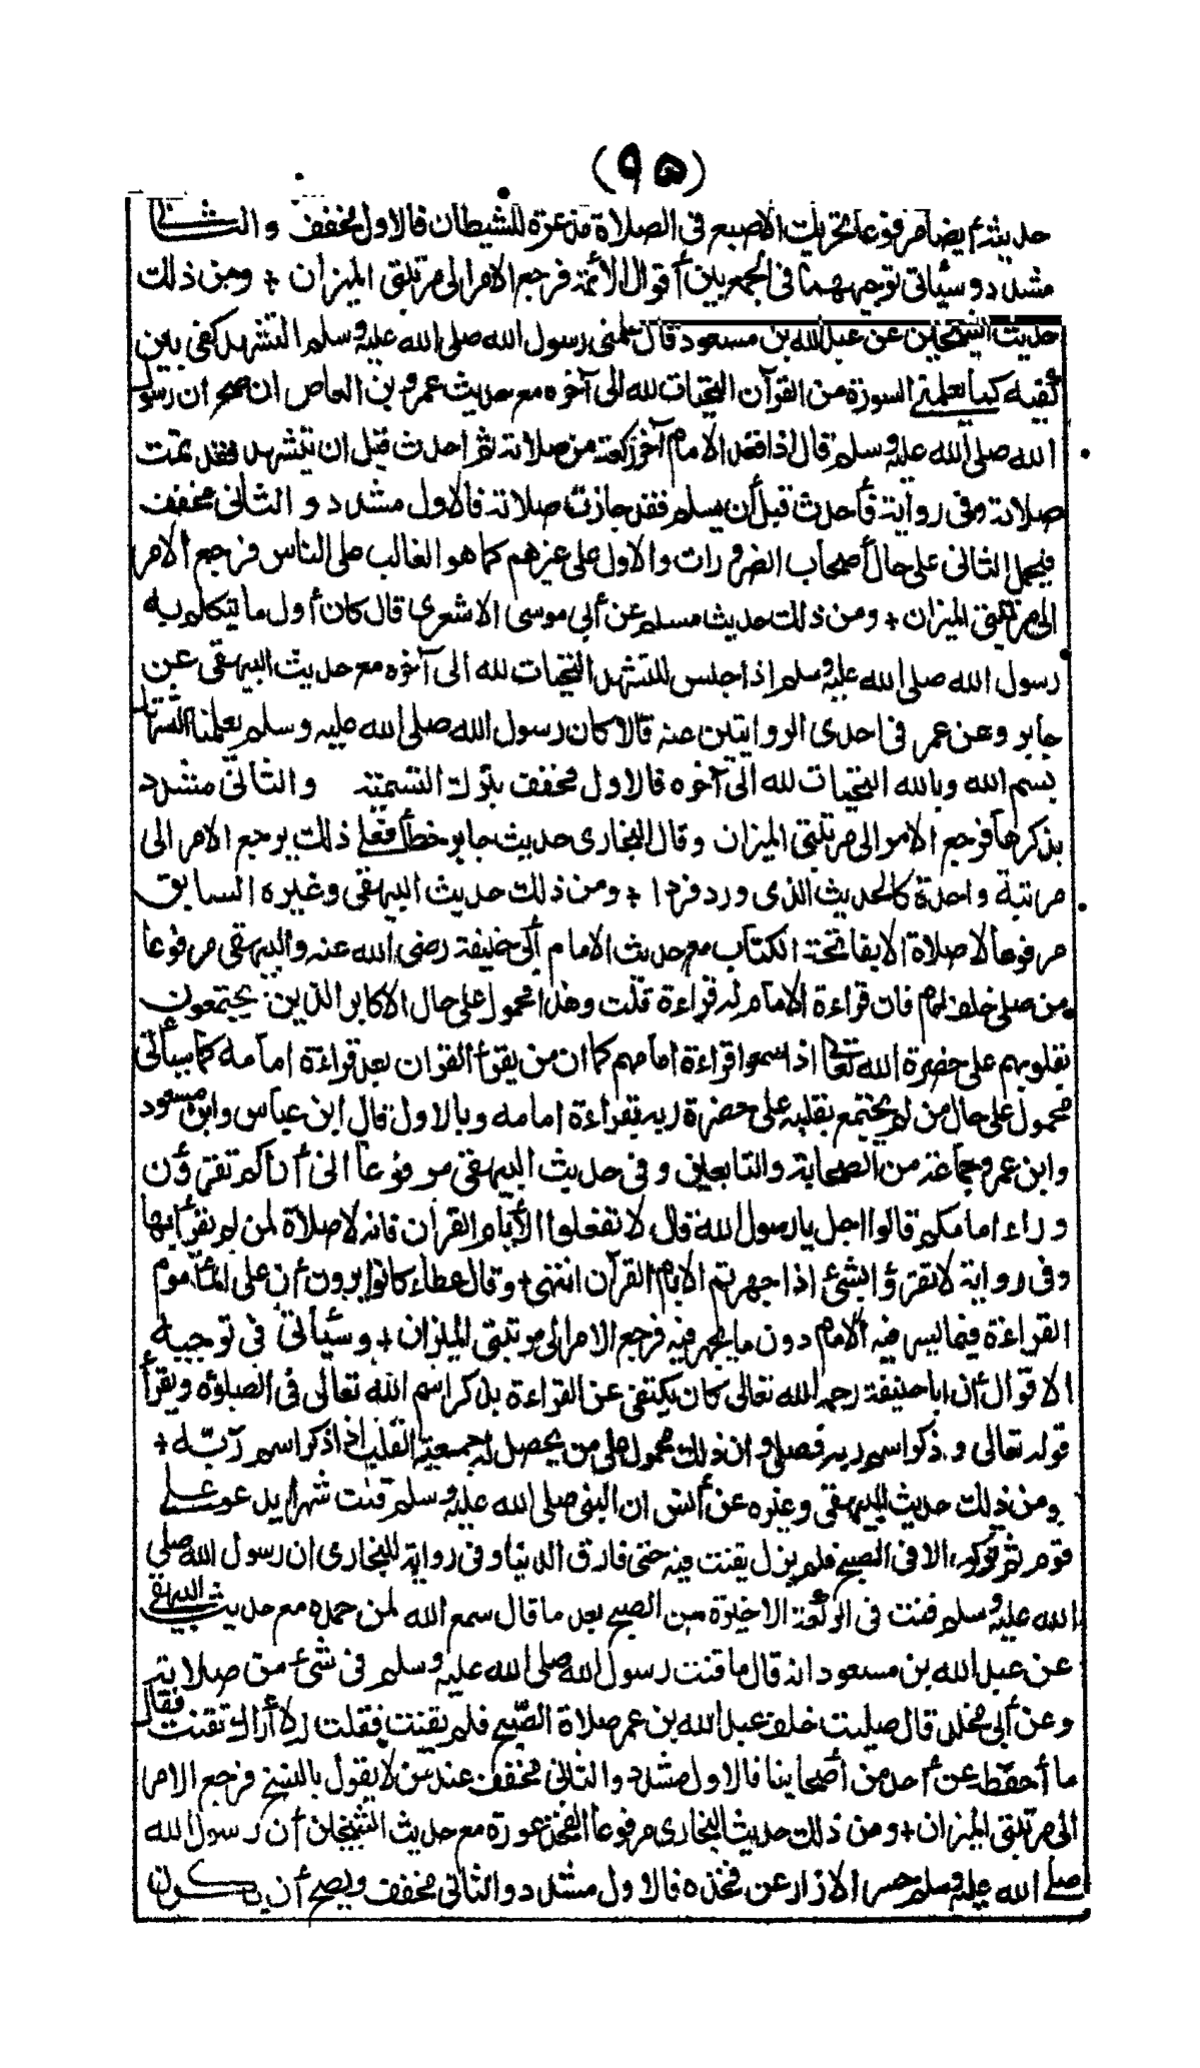 (٩٥)
حديثه أيضا مرفوعا تحريك الاصبع فى الصلاة مذعرة للشيطان فالاول مخفف والثانى
مشدد وسيأتى توجيههما فى الجمع بين أقوال الأئمة فرجع الامر الى مرتبتى الميزان + ومن ذلك
حديث الشيخين عن عبد الله بن مسعود قال علمنى رسول الله صلى الله عليه وسلم التشهد كفى بين
كفيه كما يعلمنى السورة من القرآن التحيات لله الى آخره مع حديث عمرو بن العاص ان صح ان رسول
الله صلى الله عليه وسلم قال اذا قعد الامام آخر ركعة من صلاته ثم احدث قبل ان يتشهد فقد تمت
صلاته وفى رواية فأحدث قبل أن يسلم فقد جازت صلاته فالاول مشدد والثانى مخفف
فيحمل الثانى على حال أصحاب الضرورات والاول على غيرهم كما هو الغالب على الناس فرجع الامر
الى مرتبتى الميزان + ومن ذلك حديث مسلم عن أبى موسى الاشعرى قال كان أول ما يتكلم به
رسول الله صلى الله عليه وسلم اذا جلس للتشهد التحيات لله الى آخره مع حديث البيهقى عن
جابر وعن عمر فى احدى الروايتين عنه قالا كان رسول الله صلى الله عليه وسلم يعلمنا التشهد
بسم الله وبالله التحيات لله الى آخره فالاول مخفف بترك التسمية والثانى مشدد
بذكرها فرجع الامر الى مرتبتى الميزان وقال البخارى حديث جابر خطأ فعلى ذلك يرجع الامر الى
مرتبة واحدة كالحديث الذى ورد فردا + ومن ذلك حديث البيهقى وغيره السابق
مرفوعا لا صلاة الا بفاتحة الكتاب مع حديث الامام أبى حنيفة رضى الله عنه والبيهقى مرفوعا
من صلى خلف امام فان قراءة الامام له قراءة قلت وهذا محمول على حال الاكابر الذين يجتمعون
بقلوبهم على حضرة الله تعالى اذا سمعوا قراءة امامهم كما ان من يقرأ القرآن بعد قراءة امامه كما سيأتى
محمول على حال من لم يجتمع بقلبه على حضرة ربه بقراءة امامه وبالاول قال ابن عباس وابن مسعود
وابن عمر وجماعة من الصحابة والتابعين وفى حديث البيهقى مرفوعا انى أراكم تقرؤن
وراء امامكم قالوا اجل يا رسول الله قال لا تفعلوا الا بأم القرآن فانه لا صلاة لمن لم يقرأ بها
وفى رواية لا تقرؤا بشئ اذا جهرتم الا بأم القرآن انتهى + وقال عطاء كانوا يرون أن على المأموم
القراءة فيما يسر فيه الامام دون ما يجهر فيه فرجع الامر الى مرتبتى الميزان + وسيأتى فى توجيه
الاقوال أن ابا حنيفة رحمه الله تعالى كان يكتفى عن القراءة بذكر اسم الله تعالى فى الصلوة ويقرأ
قوله تعالى وذكر اسم ربه فصلى وان ذلك محمول على من يحصل له جمعية القلب اذا ذكر اسم ربه +
ومن ذلك حديث البيهقى وغيره عن أنس ان النبى صلى الله عليه وسلم قنت شهرا يدعو على
قوم ثم تركه الا فى الصبح فلم يزل يقنت فيه حتى فارق الدنيا وفى رواية للبخارى ان رسول الله صلى
الله عليه وسلم قنت فى الركعة الاخيرة من الصبح بعد ما قال سمع الله لمن حمده مع حديث البيهقى
عن عبد الله بن مسعود انه قال ما قنت رسول الله صلى الله عليه وسلم فى شئ من صلاته
وعن أبى مخلد قال صليت خلف عبد الله بن عمر صلاة الصبح فلم يقنت فقلت له لا أراك تقنت فقال
ما أحفظه عن أحد من أصحابنا فالاول مشدد والثانى مخفف عند من لا يقول بالنسخ فرجع الامر
الى مرتبتى الميزان + ومن ذلك حديث البخارى مرفوعا الفخذ عورة مع حديث الشيخين أن رسول الله
صلى الله عليه وسلم حسر الازار عن فخذه فالاول مشدد والثانى مخفف ويصح أن يكون